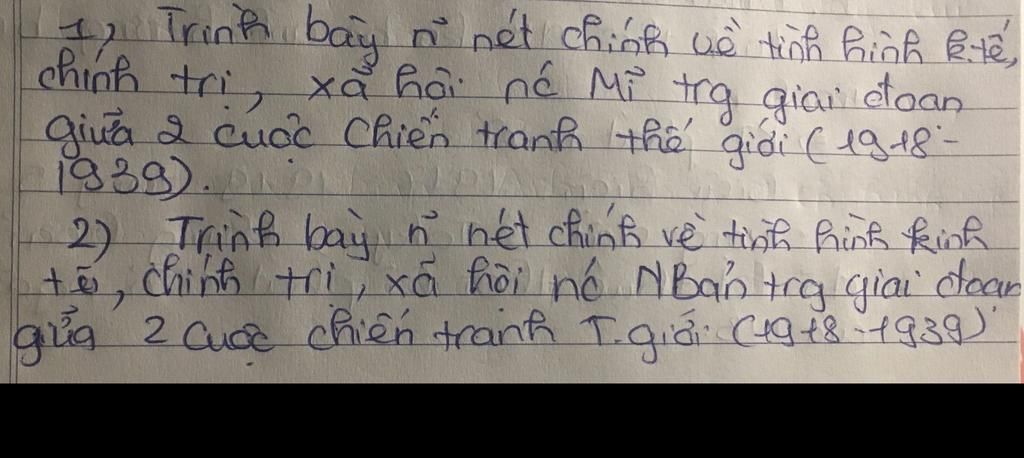 1) Trình bày n~ nét chính về tình hình k.tế,
chính trị, xã hội nc Mĩ trg giai đoạn
giữa 2 cuộc chiến tranh thế giới (1918-
1939).
2) Trình bày n~ nét chính về tình hình kinh
tế, chính trị, xã hội nc NBản trg giai đoạn
giữa 2 cuộc chiến tranh T.giới (1918-1939)